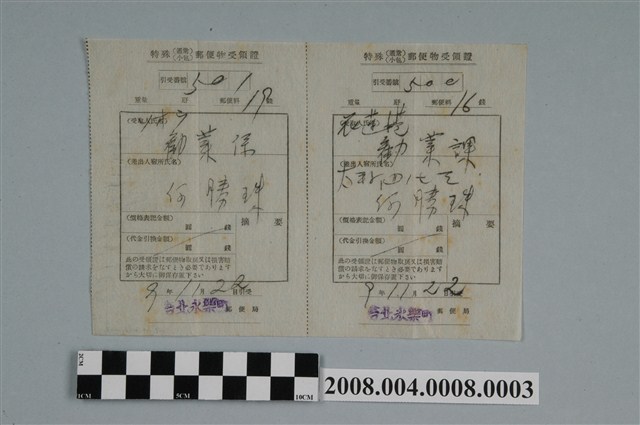 特殊（書留 小包）郵便物受領證
引受番號 501
重量 瓦 郵便料 19 錢
（受取人氏名）
勸業保
（差出人宿所氏名）
何勝珠
（價格表記金額） 摘要
圓 錢
（代金引換金額）
圓 錢
此の受領證は郵便物取戾又は損害賠
償の請求をなすとき必要でありますか
ら大切に御保存置下さい
9年11月22日引受
台北永樂町 郵便局
特殊（書留 小包）郵便物受領證
引受番號 500
重量 瓦 郵便料 16 錢
（受取人氏名）
花蓮港
勸業課
（差出人宿所氏名）
何勝珠
（價格表記金額） 摘要
圓 錢
（代金引換金額）
圓 錢
此の受領證は郵便物取戾又は損害賠
償の請求をなすとき必要であります
から大切に御保存置下さい
9年11月22日引受
台北永樂町 郵便局
2CM
1CM
5CM
10CM
2008.004.0008.0003